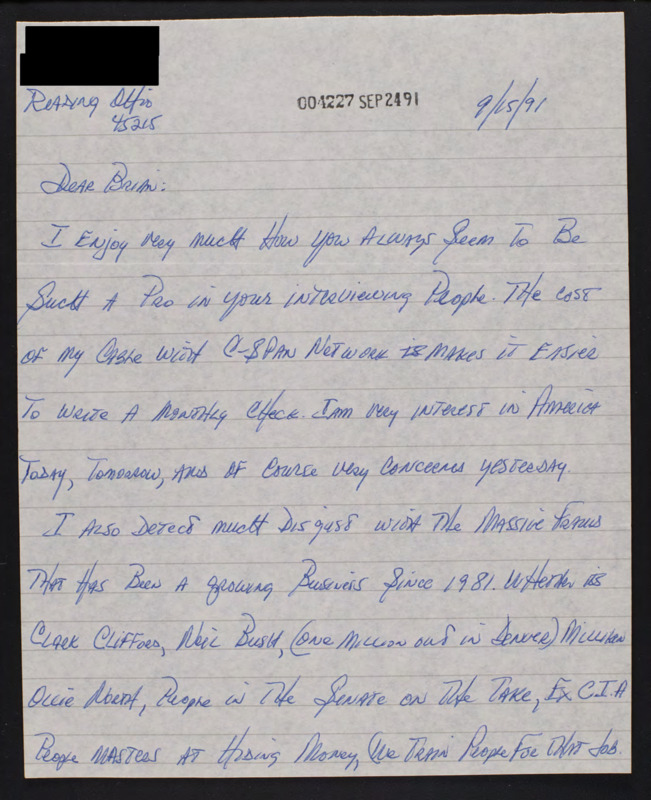 Reading Ohio
45215
004227 SEP 24 91
9/15/91
Dear Brian:
I Enjoy very much How you Always Seem To Be
Such A Pro in your interviewing People. The cost
of my Cable with C-SPAN Network is makes it Easier
To write A Monthly Check. I am very interest in America
Today, Tomorrow, and of Course very Concerned yesterday
I Also Detect much Disgust with The Massive Frauds
That Has Been A growing Business Since 1981. Whether is
Clark Clifford, Neil Bush, (one million out in Denver) Milliken
Ollie North, People in The Senate on The Take, Ex C.I.A
People Masters At Hiding Money, (We Train People For That Job.